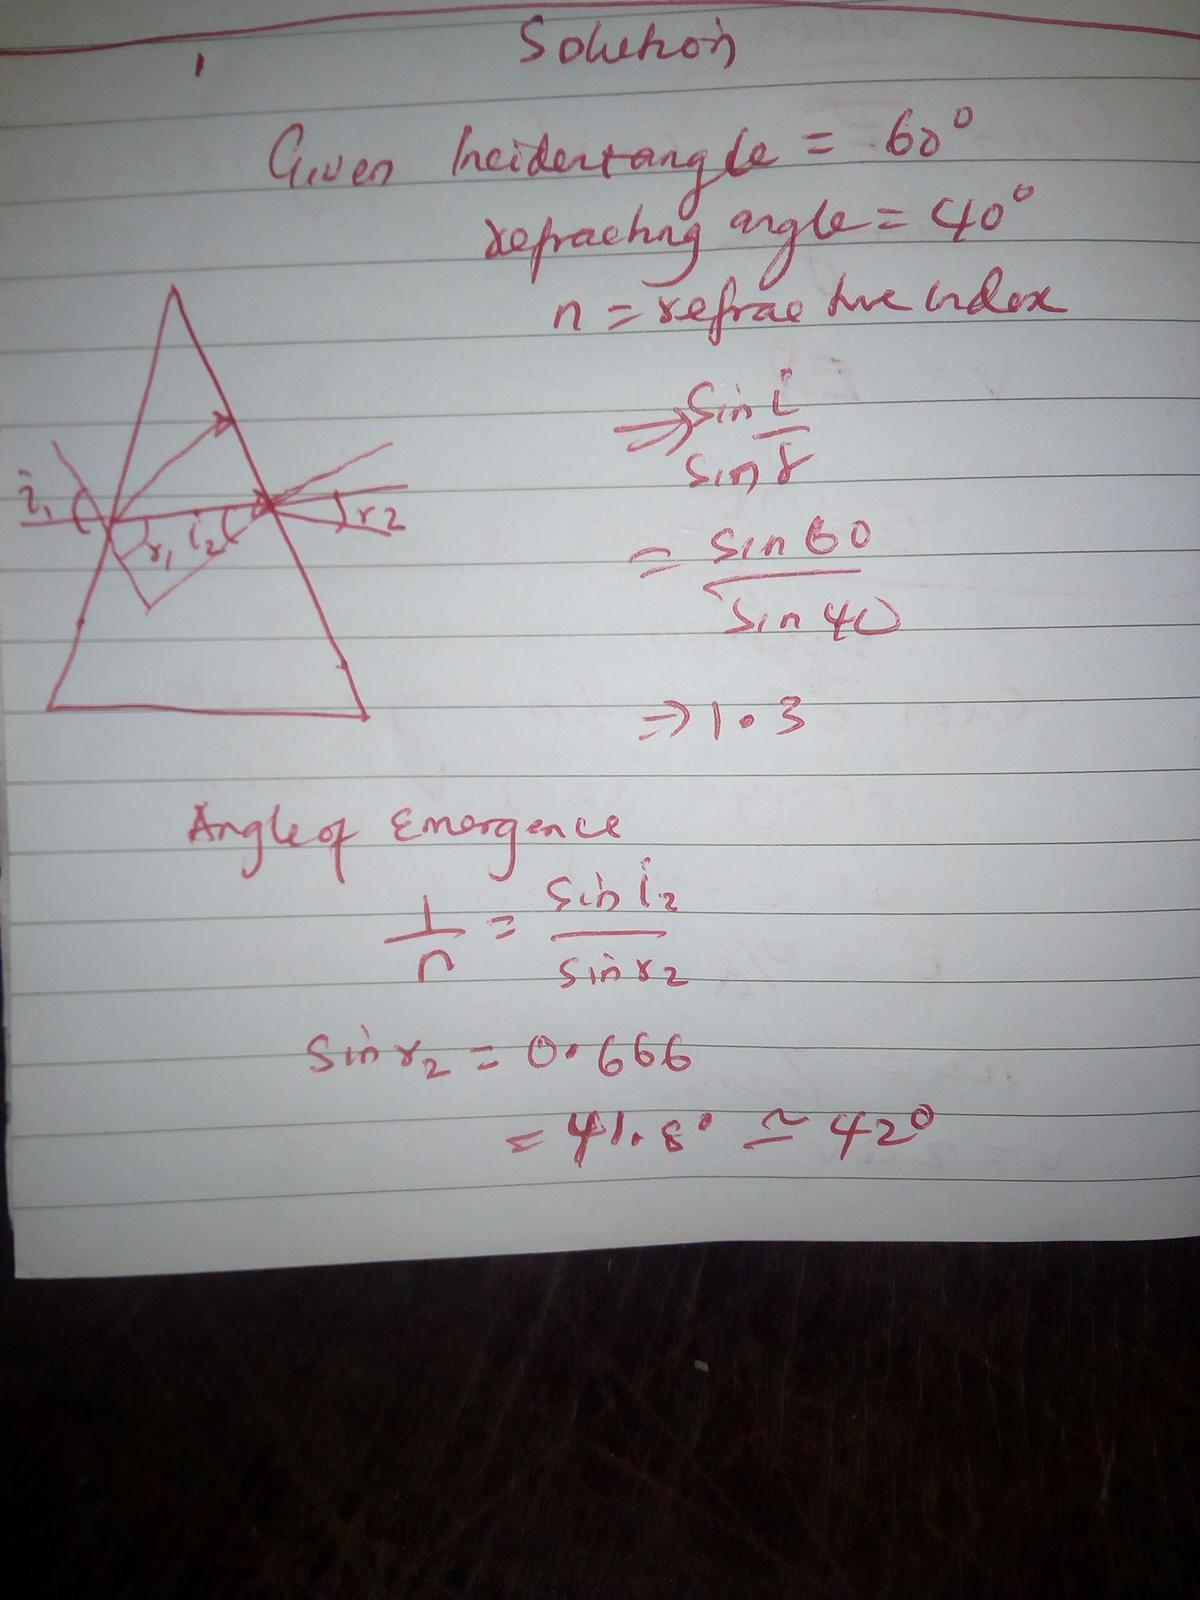 Solution
Given Incident angle = 60°
refracting angle = 40°
n = refractive index
⇒ Sin i
Sin r
= Sin 60
Sin 40
⇒ 1.3
i₁
r₁
i₂
r₂
Angle of Emergence
1/n = Sin i₂ / Sin r₂
Sin r₂ = 0.666
= 41.8° ≃ 42°